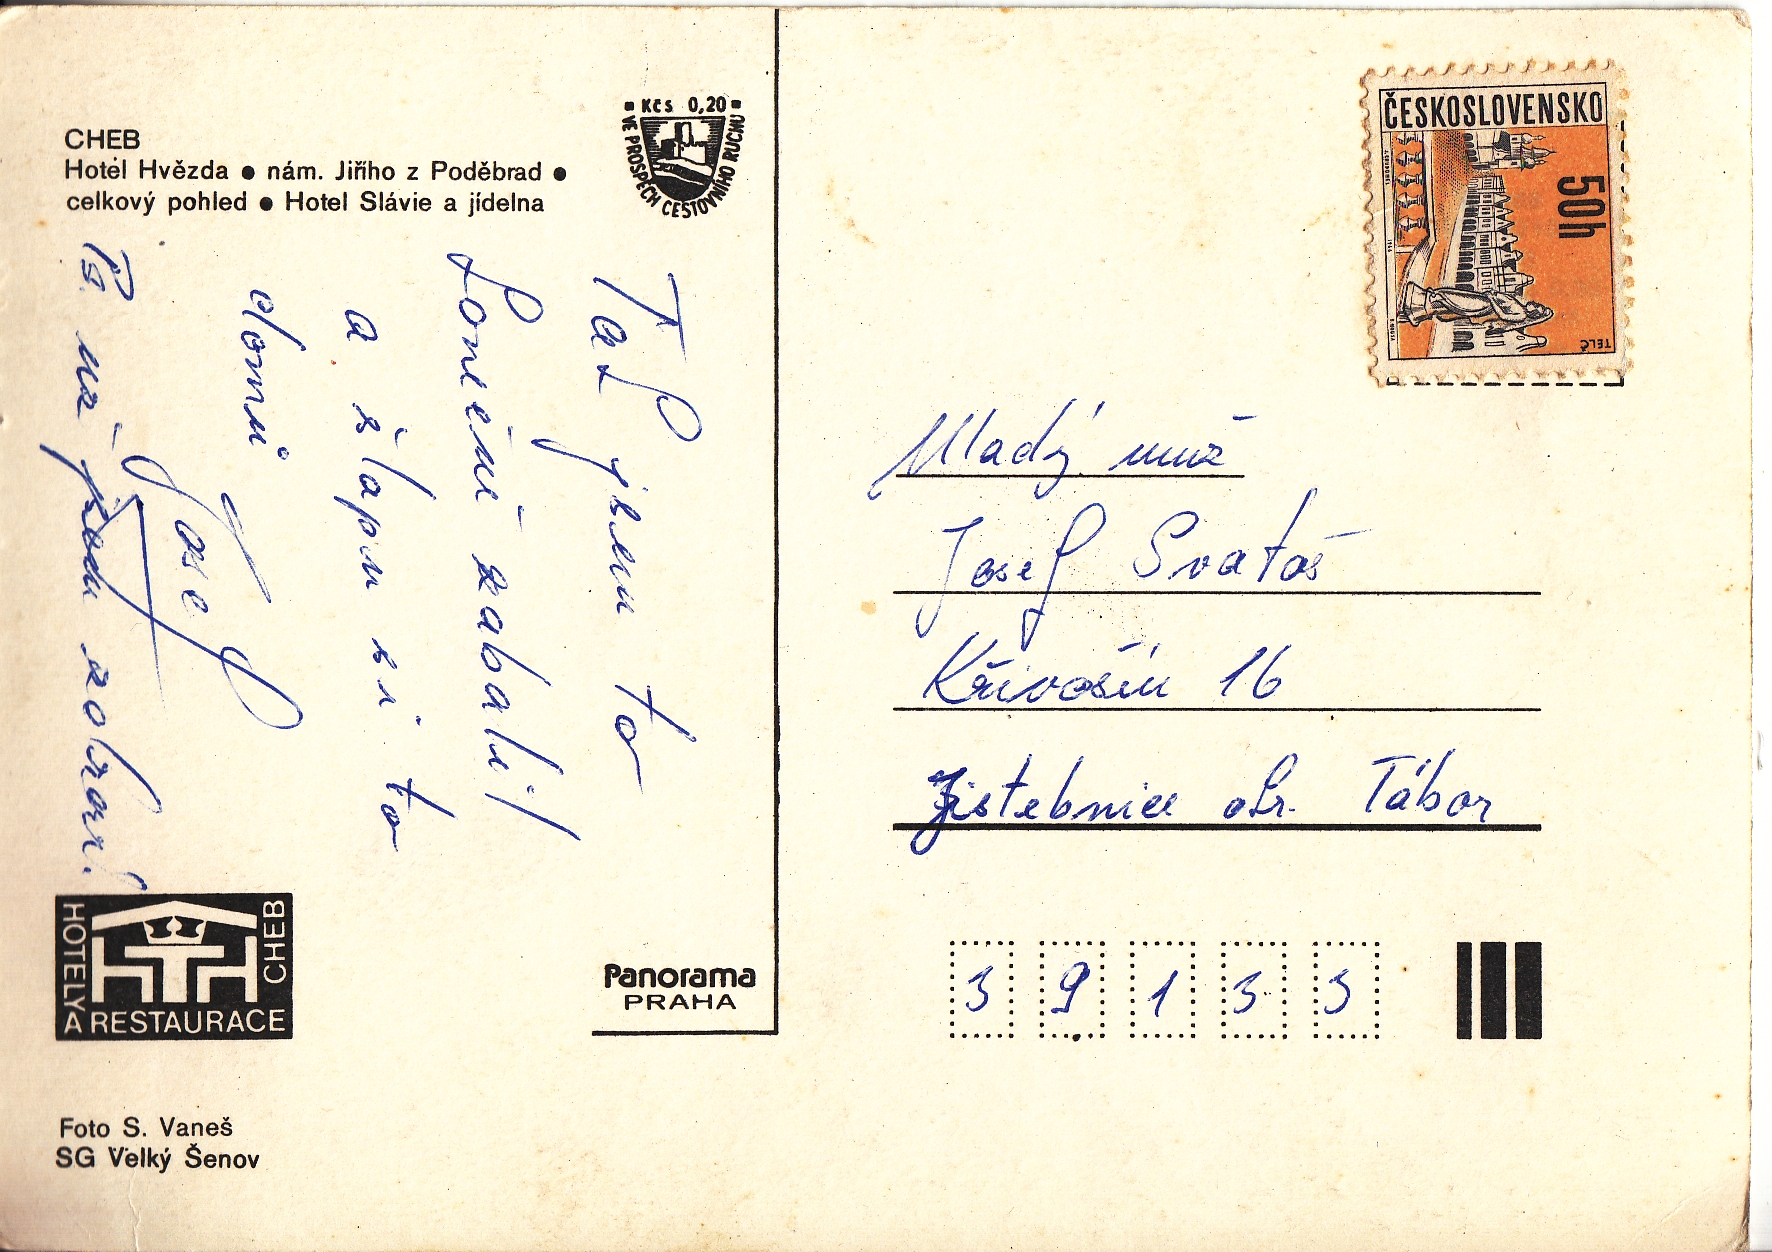 CHEB
Hotel Hvězda ● nám. Jiřího z Poděbrad ●
celkový pohled ● Hotel Slávie a jídelna
■ Kčs 0,20 ■
VE PROSPĚCH CESTOVNÍHO RUCHU
Tak jsem to
konečně zabalil
a šlapu si to
domů
Josef
Ps. už jsou zobrazi!
HOTELY A RESTAURACE CHEB
Panorama
PRAHA
Foto S. Vaneš
SG Velký Šenov
ČESKOSLOVENSKO
50h
TELČ
Mladý muž
Josef Svatoš
Křivošín 16
Jistebnice okr. Tábor
3 9 1 3 3